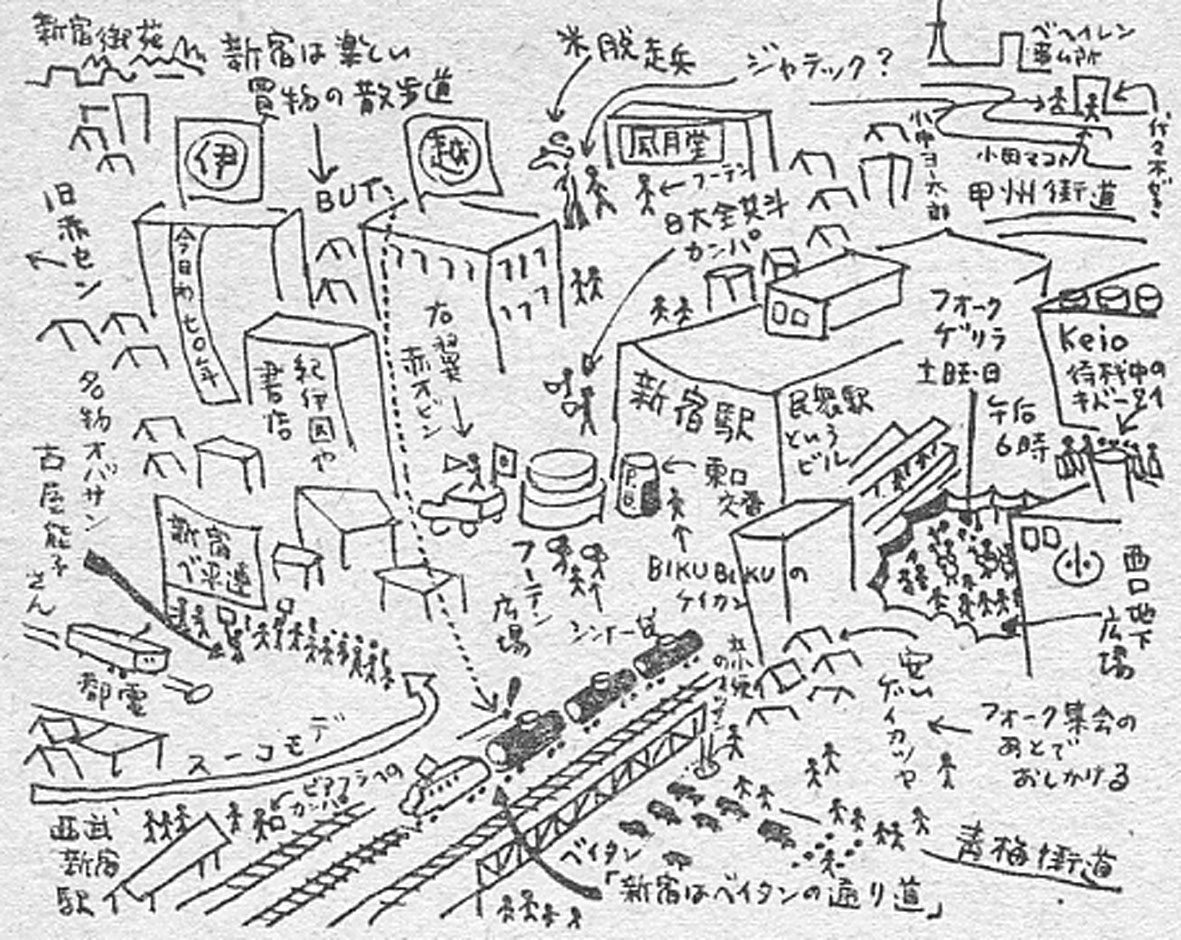 新宿御苑
新宿は楽しい
買物の散歩道
BUT
米脱走兵
ジャテック?
ベヘイレン
事ム所
伊
越
風月堂
フーテン
小田マコト
甲州街道
旧赤セン
今日わ七〇年
日大全共斗
カンパ
紀伊国や
書店
右翼
新宿駅
民衆駅
という
ビル
フォーク
ゲリラ
土曜・日
午后
6時
Keio
名物オバサン
古屋能子
さん
新宿
べ平連
東口
交番
BIKUBIKUの
ケイカン
フーテン
広場
西口地下
広場
都電
スーコモデ
安い
フォーク集会の
あとで
おしかける
ビアフラへの
カンパ
西武
新宿
駅
ベイタン
「新宿はベイタンの通り道」
青梅街道